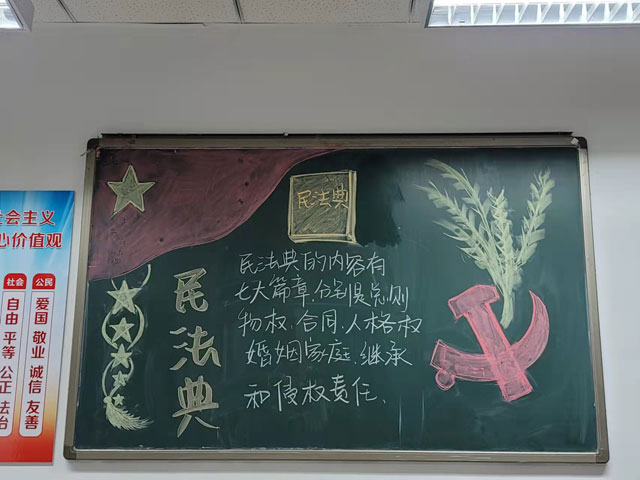 会主义
心价值观
社会 公民
自由 平等 公正 法治
爱国 敬业 诚信 友善
民法典
民法典
民法典的内容有
七大篇章.分别是总则
物权.合同.人格权
婚姻家庭.继承
和侵权责任.